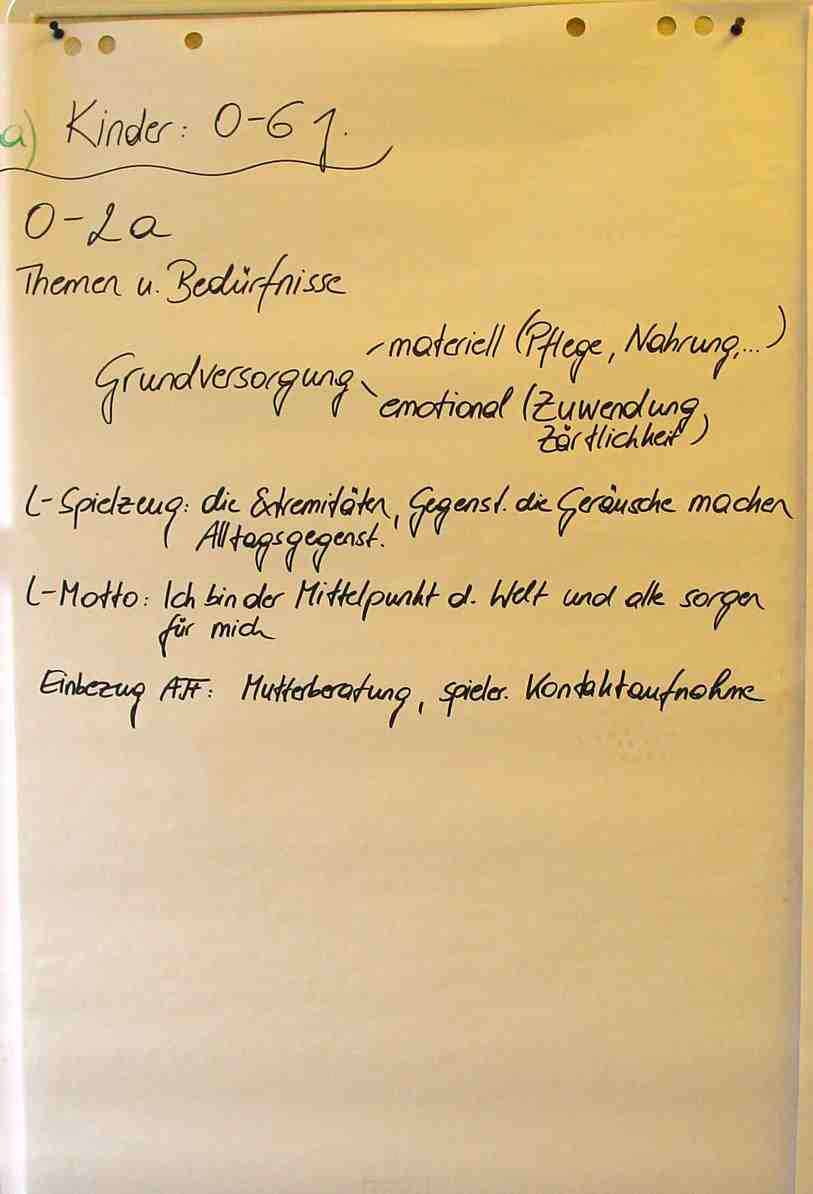 a) Kinder: 0-6 J.
0-2a
Themen u. Bedürfnisse
Grundversorgung
- materiell (Pflege, Nahrung,...)
- emotional (Zuwendung,
Zärtlichkeit)
L-Spielzeug: die Extremitäten, Gegenst. die Geräusche machen
Alltagsgegenst.
L-Motto: Ich bin der Mittelpunkt d. Welt und alle sorgen
für mich
Einbezug : Mutterberatung, spieler. Kontaktaufnahme